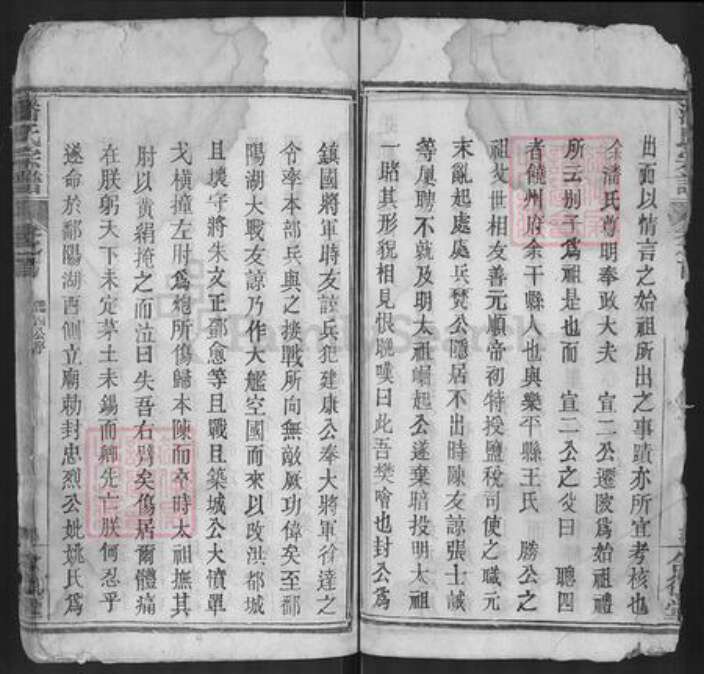 出而以情言之始祖所出之事蹟亦所宜考核也
余潘氏尊明奉政大夫 宣二公遷陵爲始祖禮
所云別子爲祖是也而 宣二公之父曰 聰四
者饒州府余干縣人也與樂平縣王氏 勝公之
祖父世相友善元順帝初特授鹽稅司使之職元
末亂起處處兵燹公隱居不出時陳友諒張士誠
等厦聘不就及明太祖崛起公遂棄暗投明太祖
一睹其形貎相見恨晚嘆曰此吾樊噲也封公爲
鎮國將軍時友諒兵犯建康公奉大將軍徐達之
令率本部兵與之接戰所向無敵厥功偉矣至鄱
陽湖大戰友諒乃作大艦空國而來以攻洪都城
且壞守將朱文正鄧愈等且戰且築城公大憤單
戈橫撞左肘爲炮所傷歸本陳而卒時太祖撫其
肘以黄絹掩之而泣曰失吾右臂矣傷居爾體痛
在朕躬天下未定茅土未錫而卿先亡朕何忍乎
遂命於鄱陽湖西側立廟勅封忠烈公妣姚氏爲
潘氏宗譜
FamilySearch